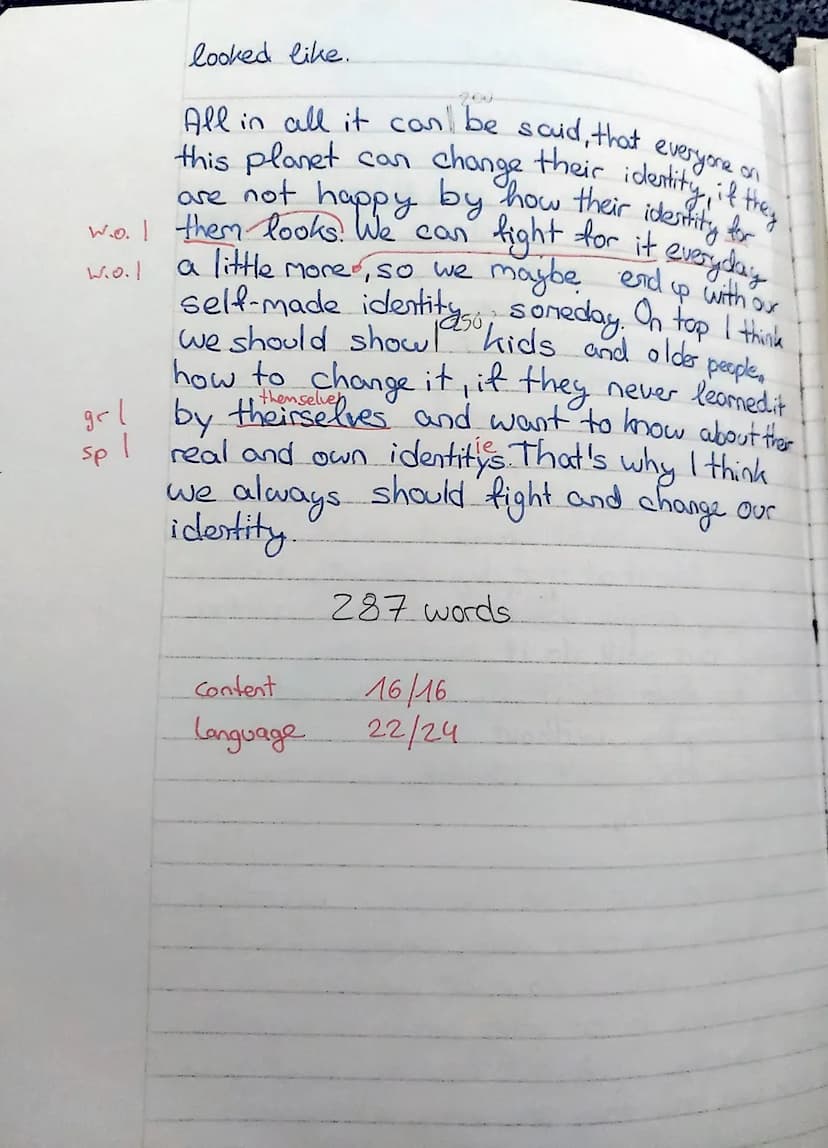 looked like.
200
All in all it can be said, that everyone on
this planet can change their identity, if they
are not happy by how their identity for
w.o. I them looks. We can fight for it everyday
w.o. I a little more, so we maybe end up with our
self-made identity someday. On top I think
250
we should show kids and older people,
how to change it, if they never learned it
themselves
gr I by theirselves and want to know about their
ie
sp I real and own identitys. That's why I think
we always should fight and change our
identity.
287 words
content 16/16
language 22/24